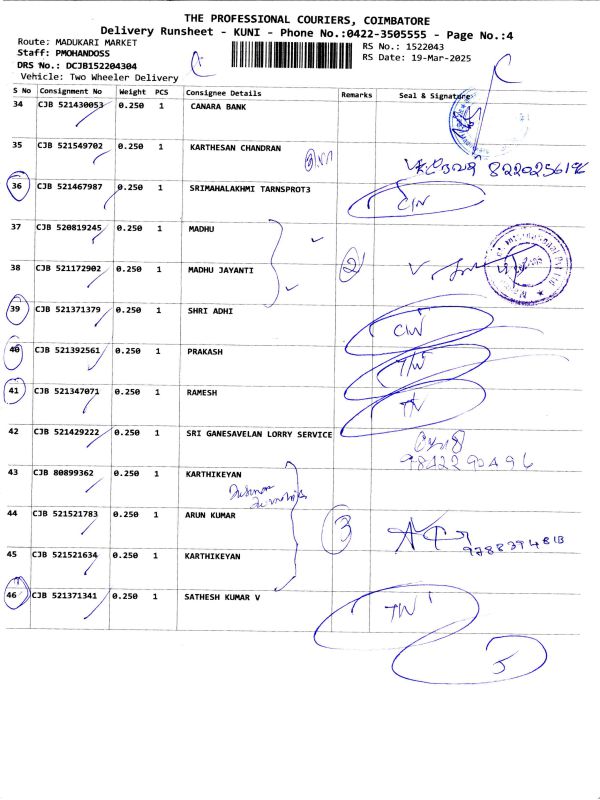 THE PROFESSIONAL COURIERS, COIMBATORE
Delivery Runsheet - KUNI - Phone No.:0422-3505555 - Page No.:4
Route: MADUKARI MARKET
RS No.: 1522043
Staff: PMOHANDOSS
RS Date: 19-Mar-2025
DRS No.: DCJB152204304
Vehicle: Two Wheeler Delivery
S No Consignment No Weight PCS Consignee Details Remarks Seal & Signature
34 CJB 521430053 0.250 1 CANARA BANK
35 CJB 521549702 0.250 1 KARTHESAN CHANDRAN
8220256196
36 CJB 521467987 0.250 1 SRIMAHALAKHMI TARNSPROT3
37 CJB 520819245 0.250 1 MADHU
38 CJB 521172902 0.250 1 MADHU JAYANTI 2
39 CJB 521371379 0.250 1 SHRI ADHI
40 CJB 521392561 0.250 1 PRAKASH
41 CJB 521347071 0.250 1 RAMESH
42 CJB 521429222 0.250 1 SRI GANESAVELAN LORRY SERVICE
43 CJB 80899362 0.250 1 KARTHIKEYAN
44 CJB 521521783 0.250 1 ARUN KUMAR 3
45 CJB 521521634 0.250 1 KARTHIKEYAN
46 CJB 521371341 0.250 1 SATHESH KUMAR V